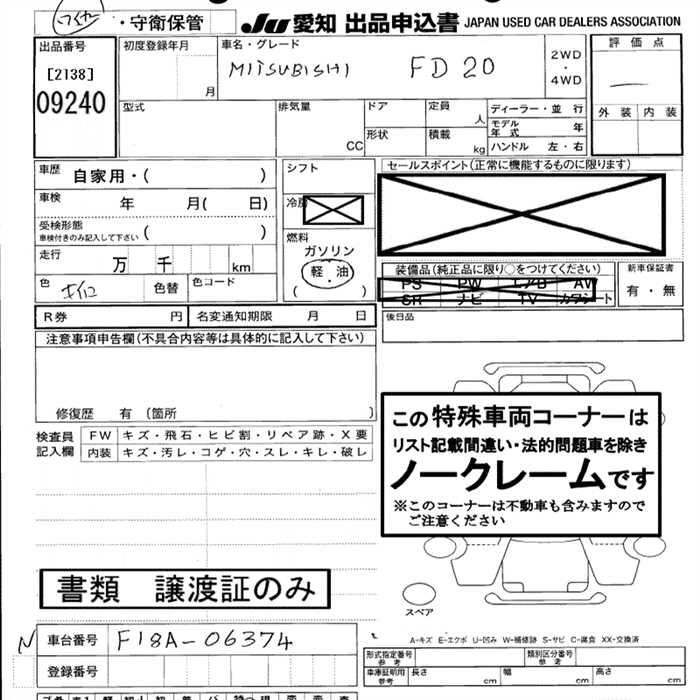 ・守衛保管
JU 愛知 出品申込書 JAPAN USED CAR DEALERS ASSOCIATION
出品番号
[2138]
09240
初度登録年月
月
車名・グレード
MITSUBISHI FD 20
2WD
・
4WD
評価点
外装 内装
型式
排気量
CC
ドア
形状
定員
人
積載
kg
ディーラー・並 行
モデル年式 年
ハンドル 左・右
車歴 自家用・( )
車検 年 月( 日)
受検形態
車検付きのみ記入して下さい ( )
走行 万 千 km
色 色替 色コード
シフト
冷房
燃料
ガソリン
軽・油
( )
セールスポイント(正常に機能するものに限ります)
装備品(純正品に限り○をつけてください)
PS PW エアB AW
SR ナビ TV カワシート
新車保証書
有・無
後日品
R券 円 名変通知期限 月 日
注意事項申告欄(不具合内容等は具体的に記入して下さい)
修復歴 有 (箇所 )
検査員
記入欄
FW キズ・飛石・ヒビ割・リペア跡・X要
内装 キズ・汚レ・コゲ・穴・スレ・キレ・破レ
この特殊車両コーナーは
リスト記載間違い・法的問題車を除き
ノークレームです
※このコーナーは不動車も含みますので
ご注意ください
書類 譲渡証のみ
スペア
N 車台番号 F18A-06374
登録番号
A-キズ E-エクボ U-凹み W-補修跡 S-サビ C-腐食 XX-交換済
形式指定番号
参考
類別区分番号
参考
車庫証明用
参考
長さ cm 幅 cm 高さ cm